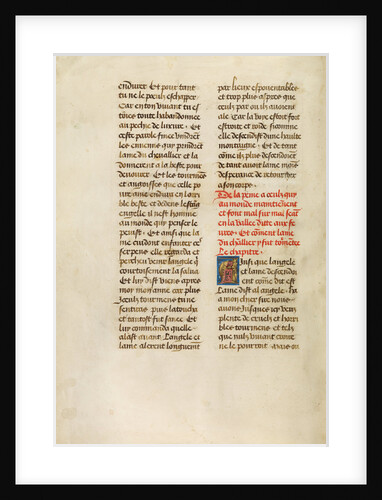 endurer Et pour tant
tu ne le poeulx eschaper
Car en ton vivant tu es
toies toute habandonnee
au pechie de luxure. Et
ceste parole finee vindrent
les ennemis qui prindrent
lame du chevallier et la
donnerent a la beste pour
devourer Et les tourmens
et angoisses que celle po
vre ame endura en lorri
ble beste et dedens lestang
engelle il nest homme
au monde qui penser le
peust. Et ainsi que la
me cuidoit enfanter ces
serpens elle regarda et
percheu venir langele qui
courtoisement la salua
Et luy dist viens apres
moy mon ame car plus
iceulx tourmens tu ne
sentiras puis la toucha
et tantost fut sanee Et
luy commanda quelle
alast avant. Langele et
lame alerent longuement
par lieux espouentables
et trop plus aspres que
ceulx par ou ilz avoient
Car la voye estoit fort
estroite et roide comme
elle descendist dune haulte
montaigne Et de tant
come ilz plus descendoient
de tant avoit lame moins
desperance de retourner
a son corps.
De la peine a ceulx qui
au monde maintiennent
et font mal sur mal
en la vallee ditte aux fe
vres. Et coment lame
du chevallier y fut tormentee
Le chapittre
Ainsi que langele
et lame descendoi
ent come dit est
Lame dist al angele. ha
a mon chier sire nous
avons jusques icy veu
plente de cruelz et horri
bles tourmens et telz
que nulz vivant come
ne le pourroit